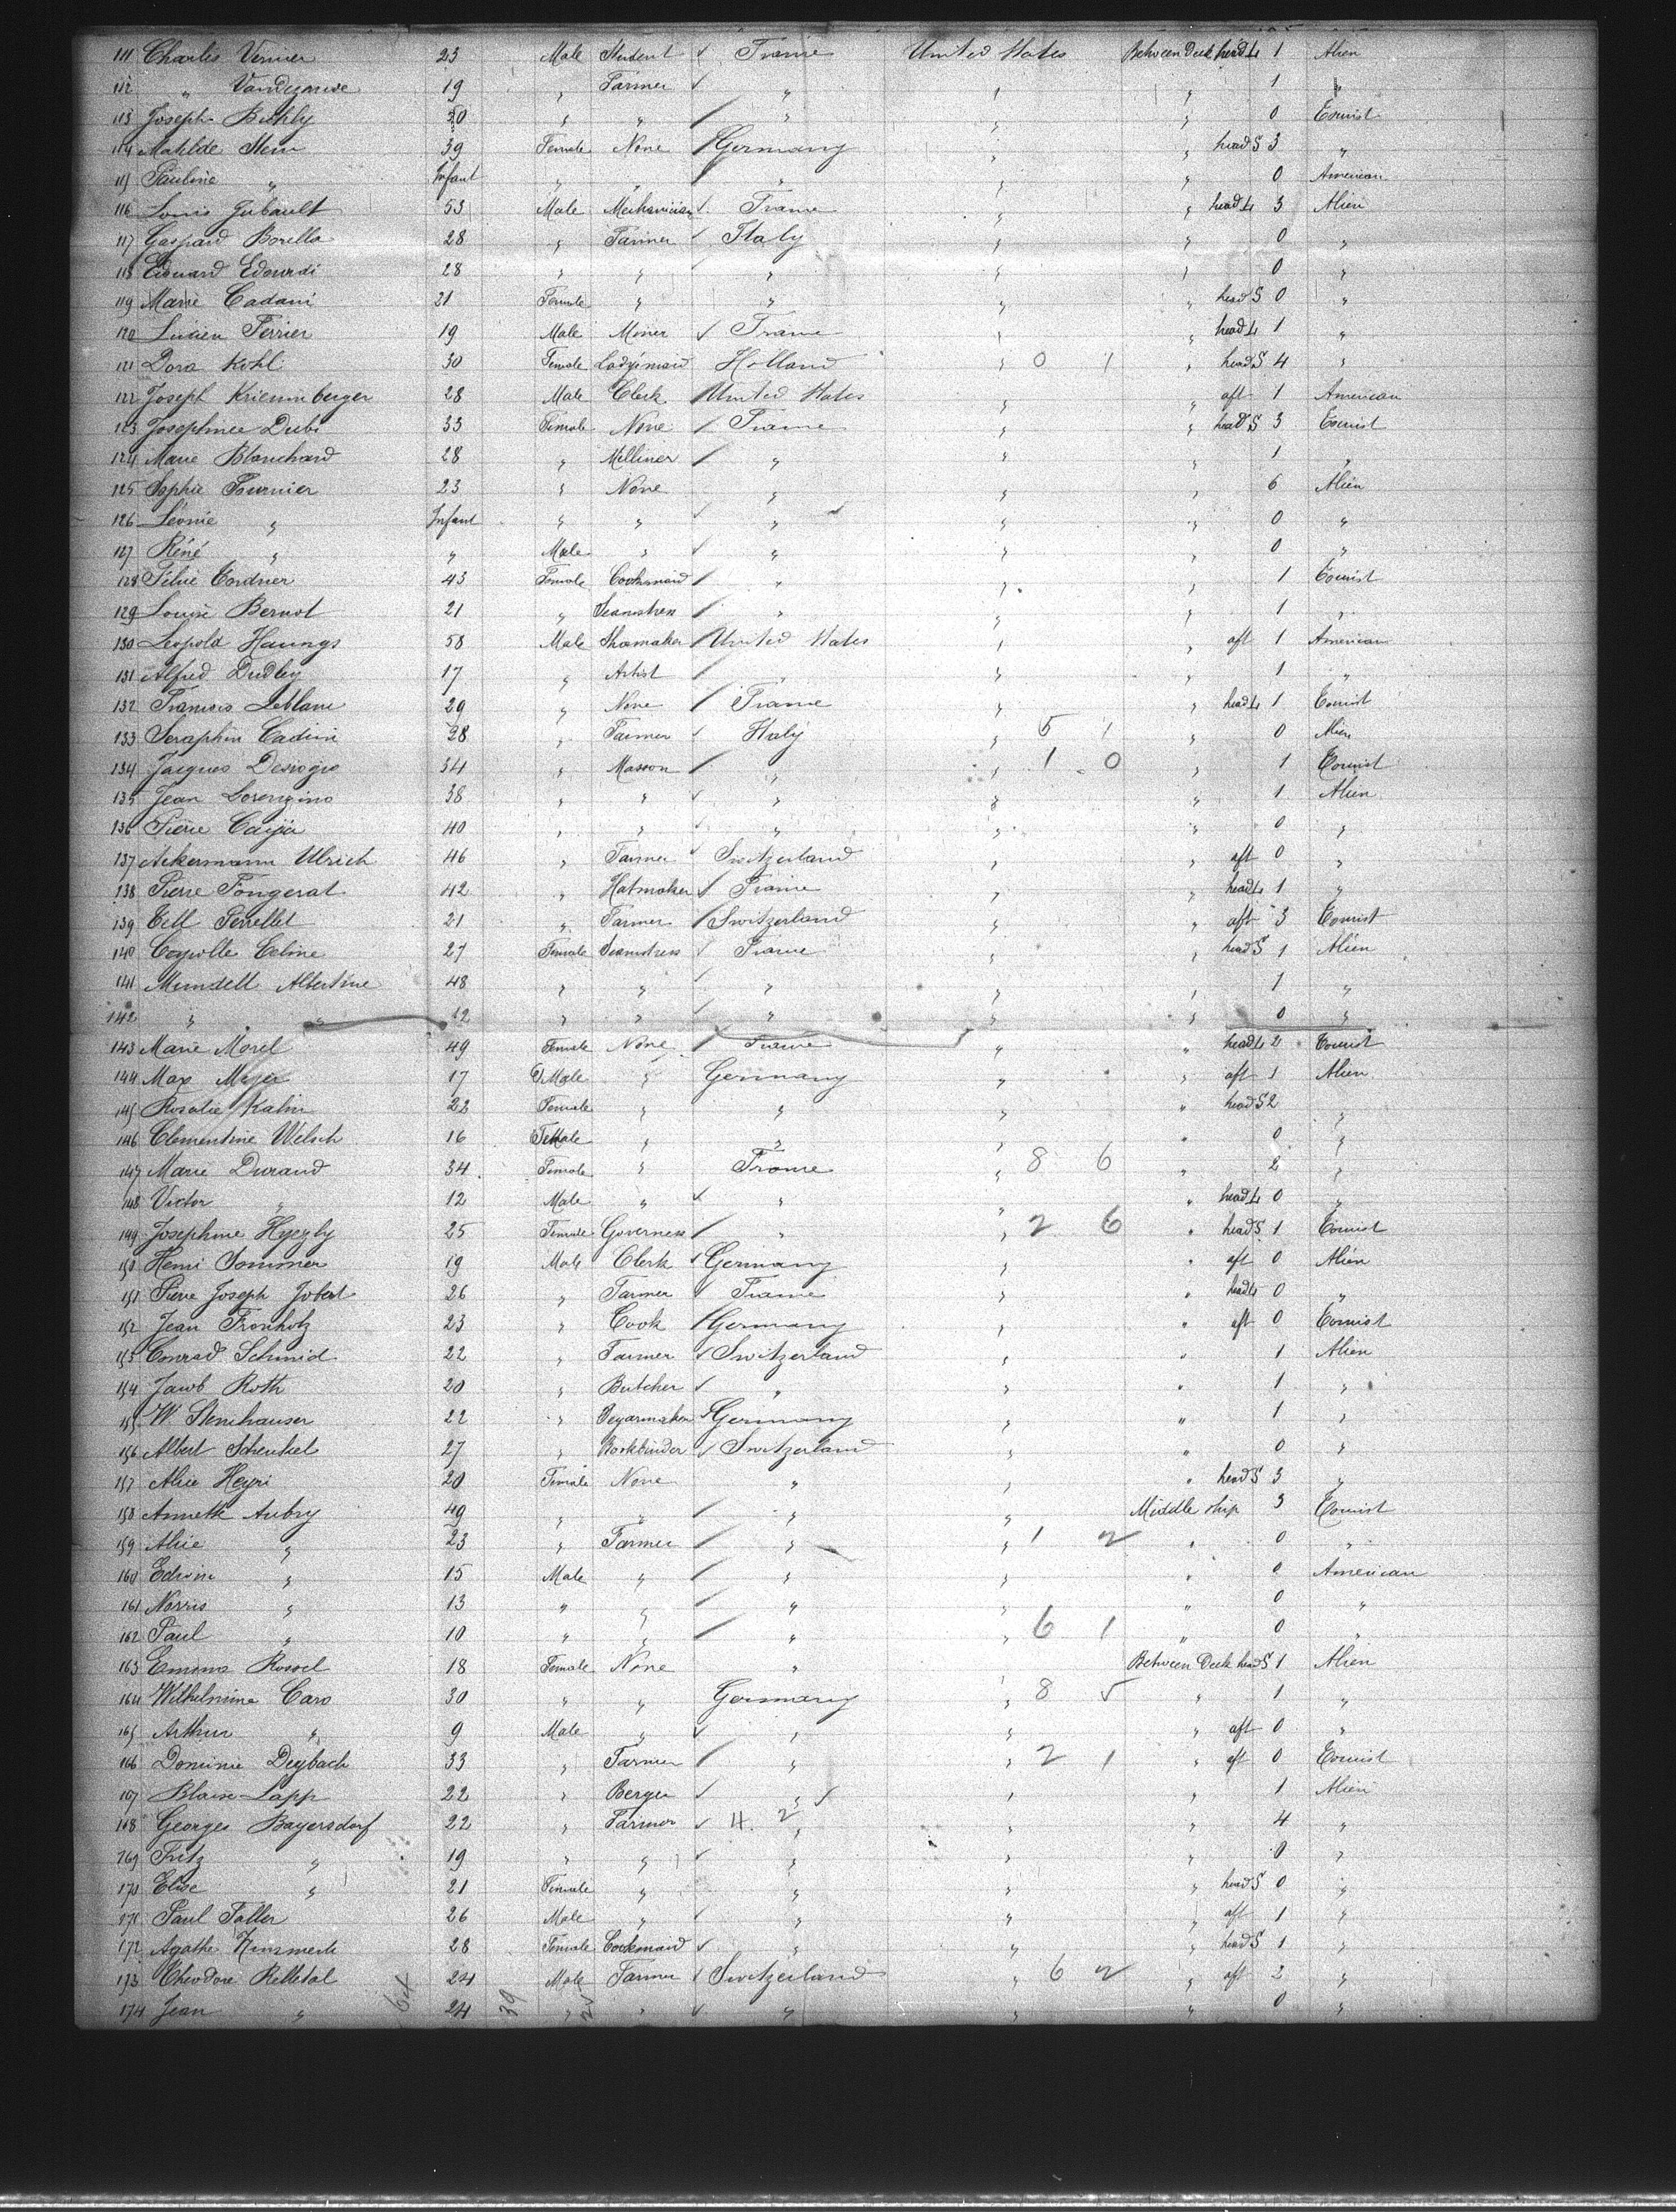 111 Charles Vernier 23 Male Student ✓ France United States Between Deck head 4 1 Alien
112 " 19 " Farmer ✓ " " " 1 "
113 Joseph Buhly 30 " " / " " " 0 Tourist
114 Mathilde Stein 39 Female None / Germany " " head S 3 "
115 Pauline " Infant " " / " " " 0 American
116 Louis 53 Male Mechanician ✓ France " " head 4 3 Alien
117 Gaspard Borella 28 " Farmer ✓ Italy " " 0 "
118 Edouard 28 " " " " " 0 "
119 Marie Cadani 21 Female " " " " head S 0 "
120 Lucien Perrier 19 Male Miner ✓ France " " head 4 1 "
121 Dora Kohl 30 Female Lady's maid Holland " 0 1 " head S 4 "
122 Joseph 28 Male Clerk / United States " " aft 1 American
123 33 Female None / France " " head S 3 Tourist
124 Marie Blanchard 28 " Milliner / " " " 1 "
125 Sophie Fournier 23 " None " " " 6 Alien
126 Léonie " Infant " " ✓ " " " 0 "
127 Réné " " Male " ✓ " " " 0 "
128 Cordier 43 Female Cooksmaid / " " " 1 Tourist
129 Louise Bernot 21 " Seamstress / " " " 1 "
130 Leopold Haungs 58 Male Shoemaker / United States " " aft 1 American
131 Alfred Dudley 17 " Artist / " " " 1 "
132 Francois Leblanc 29 " None / France " " head 4 1 Tourist
133 Seraphin Cadini 28 " Farmer ✓ Italy " 5 1 " 0 Alien
134 Jacques 34 " Masson / " " 1 0 " 1 Tourist
135 Jean Lorenzino 38 " " ✓ " " " 1 Alien
136 Pierre 40 " " ✓ " " " 0 "
137 Ackermann Ulrich 46 " Farmer ✓ Switzerland " " aft 0 "
138 Pierre Fongerat 42 " Hatmaker ✓ France " " head 4 1 "
139 Tell Perrellet 21 " Farmer / Switzerland " " aft 3 Tourist
140 Celine 27 Female Seamstress ✓ France " " head S 1 Alien
141 Albertine 48 " " ✓ " " " 1 "
142 " " 12 " " ✓ " " " 0 "
143 Marie Morel 49 Female None / France " " head 4 2 Tourist
144 Max Meyer 17 Male " Germany " " aft 1 Alien
145 Rosalie Kahn 22 Female " " " " head S 2 "
146 Clementine Welsch 16 Female " " " " 0 "
147 Marie Durand 34 Female " France " 8 6 " 2 "
148 Victor " 12 Male " ✓ " " " head 4 0 "
149 Josephine 25 Female Governess / " " 2 6 " head S 1 Tourist
150 Henri Sommer 19 Male Clerk ✓ Germany " " aft 0 Alien
151 Pierre Joseph Jobert 26 " Farmer ✓ France " " head 4 0 "
152 Jean Fronholz 23 " Cook / Germany " " aft 0 Tourist
153 Conrad Schmid 22 " Farmer ✓ Switzerland " " 1 Alien
154 Jacob Roth 20 " Butcher ✓ " " " 1 "
155 W. Steinhauser 22 " Segarmaker ✓ Germany " " 1 "
156 Albert Schenkel 27 " Bookbinder ✓ Switzerland " " 0 "
157 Alice 20 Female None " " " head S 3 "
158 Annette Aubry 49 " " / " " Middle ship 3 Tourist
159 Alice " 23 " Farmer / " " 1 2 " 0 "
160 Edwin " 15 Male " / " " " 0 American
161 Norris " 13 " " / " " " 0 "
162 Paul " 10 " " / " " 6 1 " 0 "
163 Emma Rossel 18 Female None " Between Deck head S 1 Alien
164 Wilhelmine Caro 30 " " Germany " 8 5 " 1 "
165 Arthur " 9 Male " ✓ " " " aft 0 "
166 Dominic Deybach 33 " Farmer / " " 2 1 " aft 0 Tourist
167 Blaise Lapp 22 " Berger ✓ " ✓ " " 1 Alien
168 Georges Bayersdorf 22 " Farmer ✓ 4 2 " " " 4 "
169 Fritz " 19 " " ✓ " " " 0 "
170 Elise " 21 Female " " " " head S 0 "
171 Paul Faller 26 Male " ✓ " " " aft 1 "
172 Agathe 28 Female Cookmaid ✓ " " " head S 1 "
173 Theodore 24 Male Farmer ✓ Switzerland " 6 2 " aft 2 "
174 Jean " 24 " " ✓ " " " 0 "
64 39 25